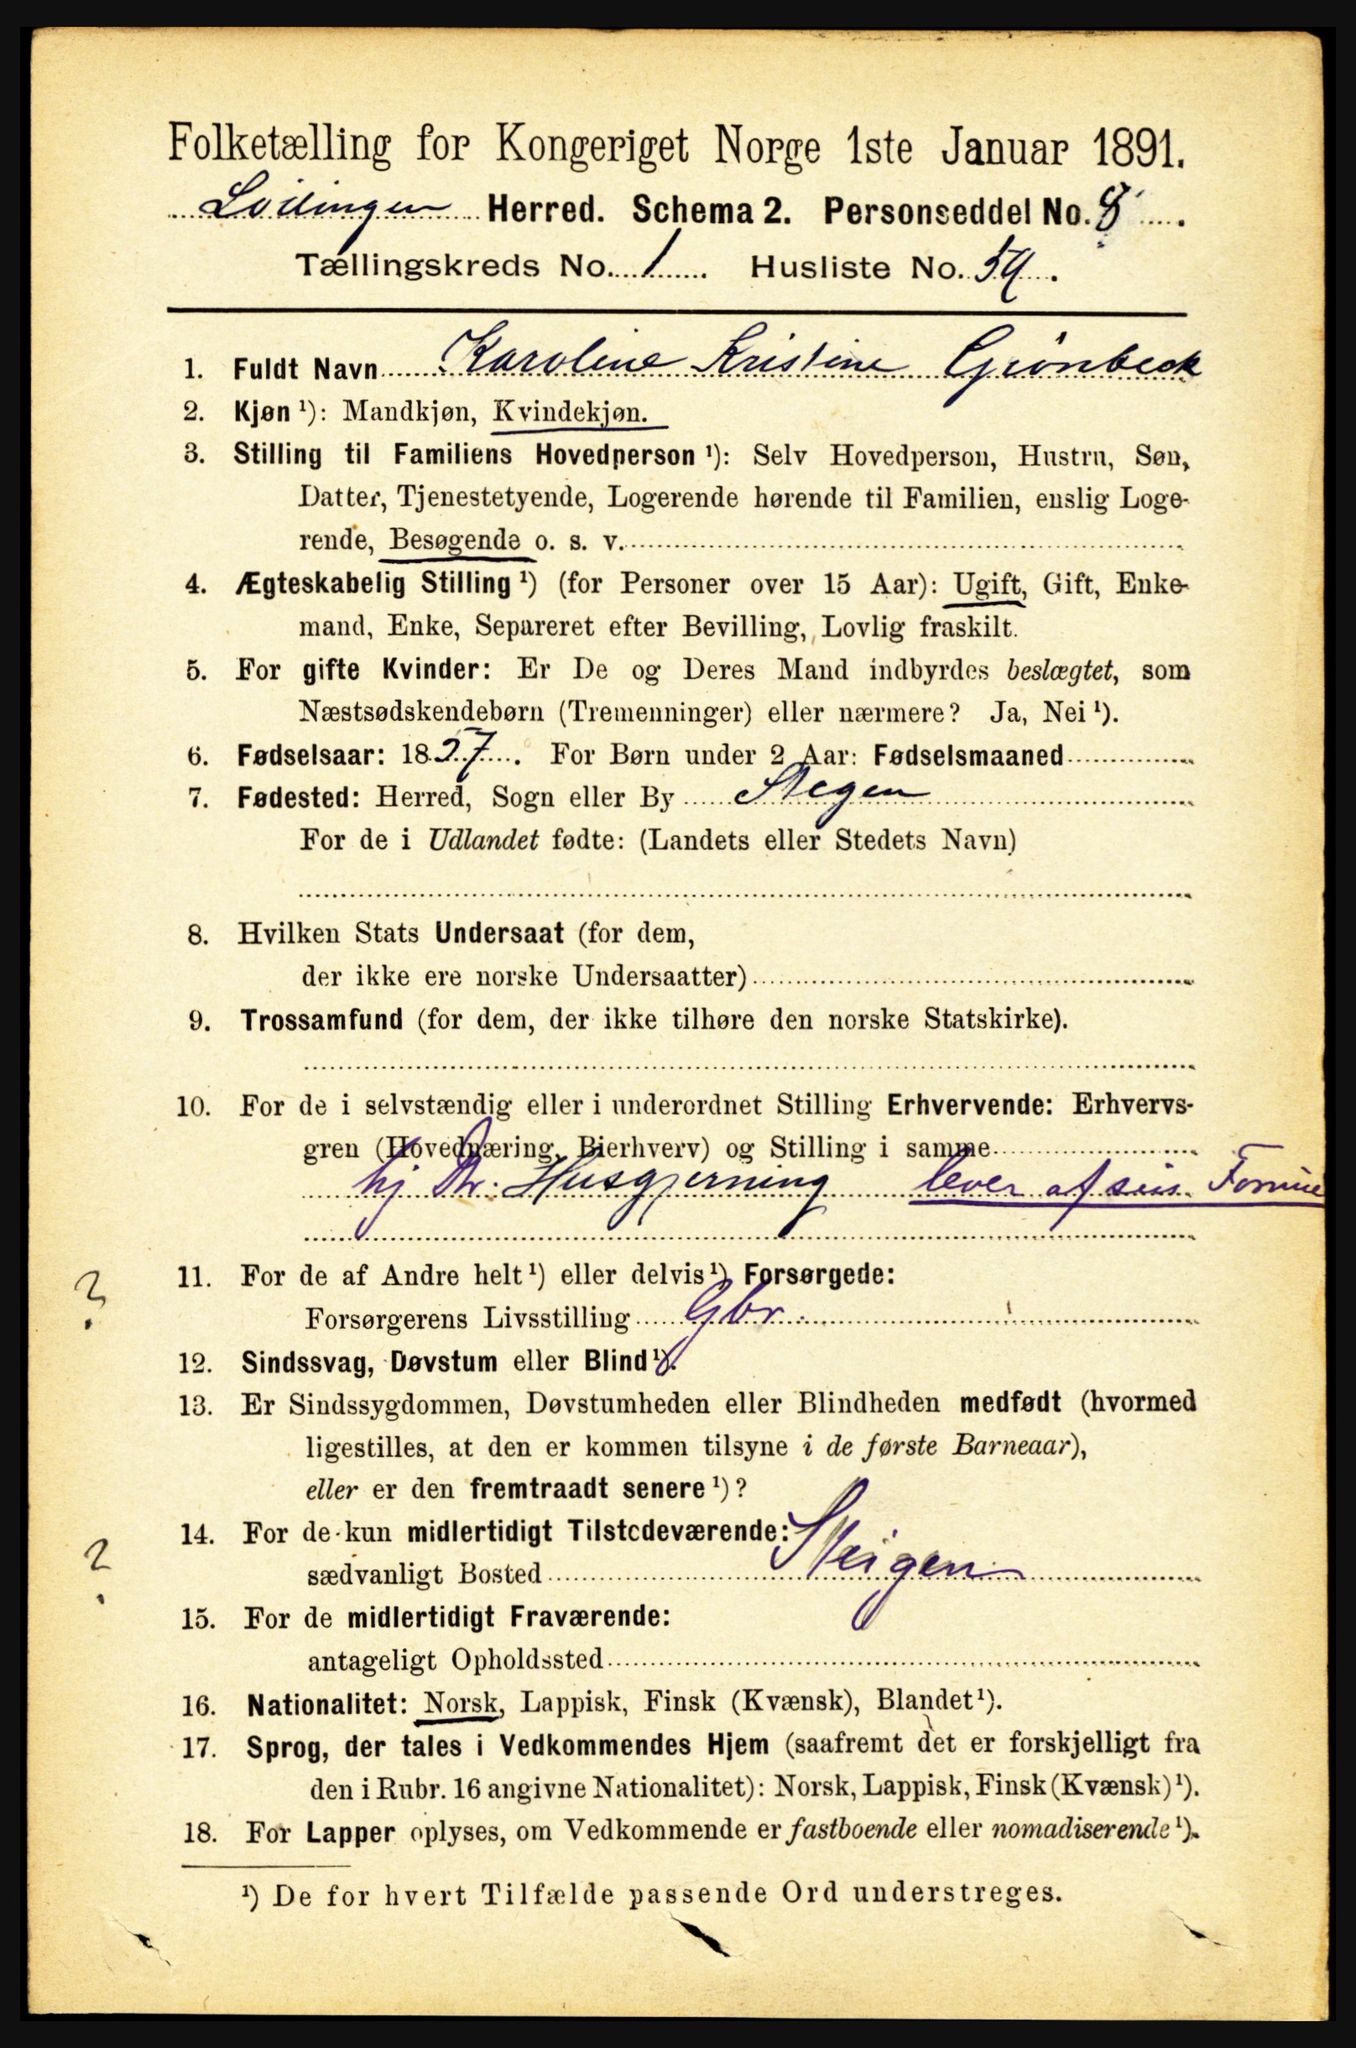 Folketælling for Kongeriget Norge 1ste Januar 1891.
Lödingen Herred. Schema 2. Personseddel No. 8.
Tællingskreds No. 1. Husliste No. 59.
1. Fuldt Navn Karoline Kristine Grönbeck
2. Kjøn ¹): Mandkjøn, Kvindekjøn.
3. Stilling til Familiens Hovedperson ¹): Selv Hovedperson, Hustru, Søn,
Datter, Tjenestetyende, Logerende hørende til Familien, enslig Loge-
rende, Besøgende o. s. v.
4. Ægteskabelig Stilling ¹) (for Personer over 15 Aar): Ugift, Gift, Enke-
mand, Enke, Separeret efter Bevilling, Lovlig fraskilt.
5. For gifte Kvinder: Er De og Deres Mand indbyrdes beslægtet, som
Næstsødskendebørn (Tremenninger) eller nærmere? Ja, Nei ¹).
6. Fødselsaar: 1857. For Børn under 2 Aar: Fødselsmaaned
7. Fødested: Herred, Sogn eller By Stegen
For de i Udlandet fødte: (Landets eller Stedets Navn)
8. Hvilken Stats Undersaat (for dem,
der ikke ere norske Undersaatter)
9. Trossamfund (for dem, der ikke tilhøre den norske Statskirke).
10. For de i selvstændig eller i underordnet Stilling Erhvervende: Erhvervs-
gren (Hovednæring, Bierhverv) og Stilling i samme
hj Br. Husgjerning lever af sin Formue
11. For de af Andre helt ¹) eller delvis ¹) Forsørgede:
?
Forsørgerens Livsstilling Gbr.
12. Sindssvag, Døvstum eller Blind ¹).
13. Er Sindssygdommen, Døvstumheden eller Blindheden medfødt (hvormed
ligestilles, at den er kommen tilsyne i de første Barneaar),
eller er den fremtraadt senere ¹)?
14. For de kun midlertidigt Tilstedeværende:
?
sædvanligt Bosted Steigen
15. For de midlertidigt Fraværende:
antageligt Opholdssted
16. Nationalitet: Norsk, Lappisk, Finsk (Kvænsk), Blandet ¹).
17. Sprog, der tales i Vedkommendes Hjem (saafremt det er forskjelligt fra
den i Rubr. 16 angivne Nationalitet): Norsk, Lappisk, Finsk (Kvænsk) ¹).
18. For Lapper oplyses, om Vedkommende er fastboende eller nomadiserende ¹).
¹) De for hvert Tilfælde passende Ord understreges.